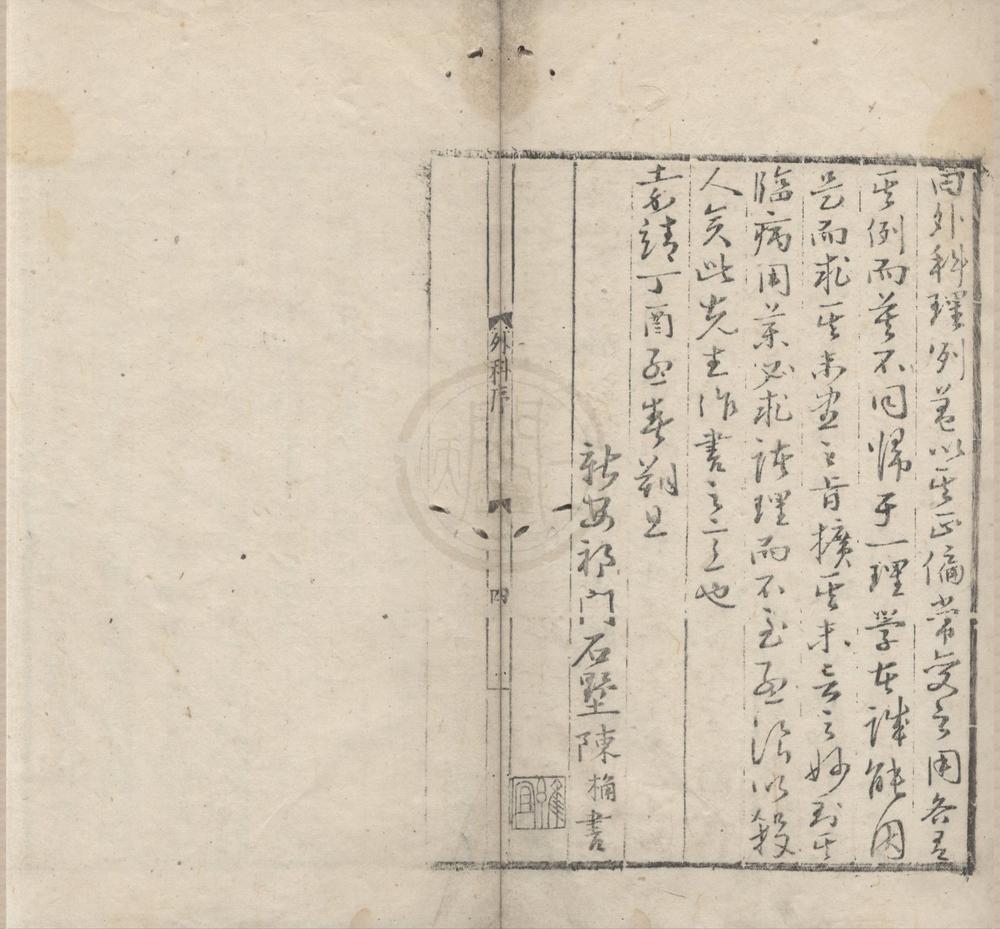 曰外科理例蓋以其正偏常变之用各有
其例而莫不同归于一理学者誠能因
是而求其未盡之旨擴其未言之妙則其
臨病用藥必求諸理而不至孟浪以殺
人矣此先生作書之意也
嘉靖丁酉孟春朔旦
新安祁門石墅陳桷書
外科序
四